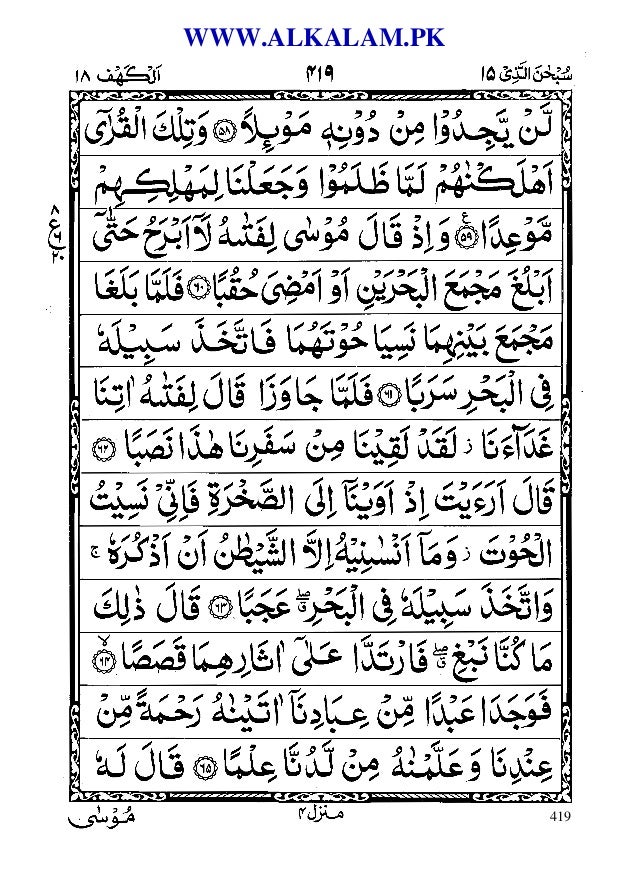 WWW.ALKALAM.PK
سُبْحٰنَ الَّذِیْۤ ۱۵
۴۱۹
اَلْکَهْف ۱۸
لَّنْ یَّجِدُوْا مِنْ دُوْنِهٖ مَوْىِٕلًا ﴿۵۸﴾ وَتِلْكَ الْقُرٰۤی
اَهْلَكْنٰهُمْ لَمَّا ظَلَمُوْا وَجَعَلْنَا لِمَهْلِكِهِمْ
مَّوْعِدًا ﴿۵۹﴾ ع وَاِذْ قَالَ مُوْسٰی لِفَتٰىهُ لَاۤ اَبْرَحُ حَتّٰۤی
۸ ع ۶ ۲۰
اَبْلُغَ مَجْمَعَ الْبَحْرَیْنِ اَوْ اَمْضِیَ حُقُبًا ﴿۶۰﴾ فَلَمَّا بَلَغَا
مَجْمَعَ بَیْنِهِمَا نَسِیَا حُوْتَهُمَا فَاتَّخَذَ سَبِیْلَهٗ
فِی الْبَحْرِ سَرَبًا ﴿۶۱﴾ فَلَمَّا جَاوَزَا قَالَ لِفَتٰىهُ اٰتِنَا
غَدَآءَنَا ز لَقَدْ لَقِیْنَا مِنْ سَفَرِنَا هٰذَا نَصَبًا ﴿۶۲﴾
قَالَ اَرَءَیْتَ اِذْ اَوَیْنَاۤ اِلَی الصَّخْرَةِ فَاِنِّیْ نَسِیْتُ
الْحُوْتَ ز وَمَاۤ اَنْسٰىنِیْهُ اِلَّا الشَّیْطٰنُ اَنْ اَذْكُرَهٗ ۚ
وَاتَّخَذَ سَبِیْلَهٗ فِی الْبَحْرِ ۖق عَجَبًا ﴿۶۳﴾ قَالَ ذٰلِكَ
مَا كُنَّا نَبْغِ ۖق فَارْتَدَّا عَلٰۤی اٰثَارِهِمَا قَصَصًا ﴿۶۴﴾ ۙ
فَوَجَدَا عَبْدًا مِّنْ عِبَادِنَاۤ اٰتَیْنٰهُ رَحْمَةً مِّنْ
عِنْدِنَا وَعَلَّمْنٰهُ مِنْ لَّدُنَّا عِلْمًا ﴿۶۵﴾ قَالَ لَهٗ
مُوْسٰی
منزل ۴
419